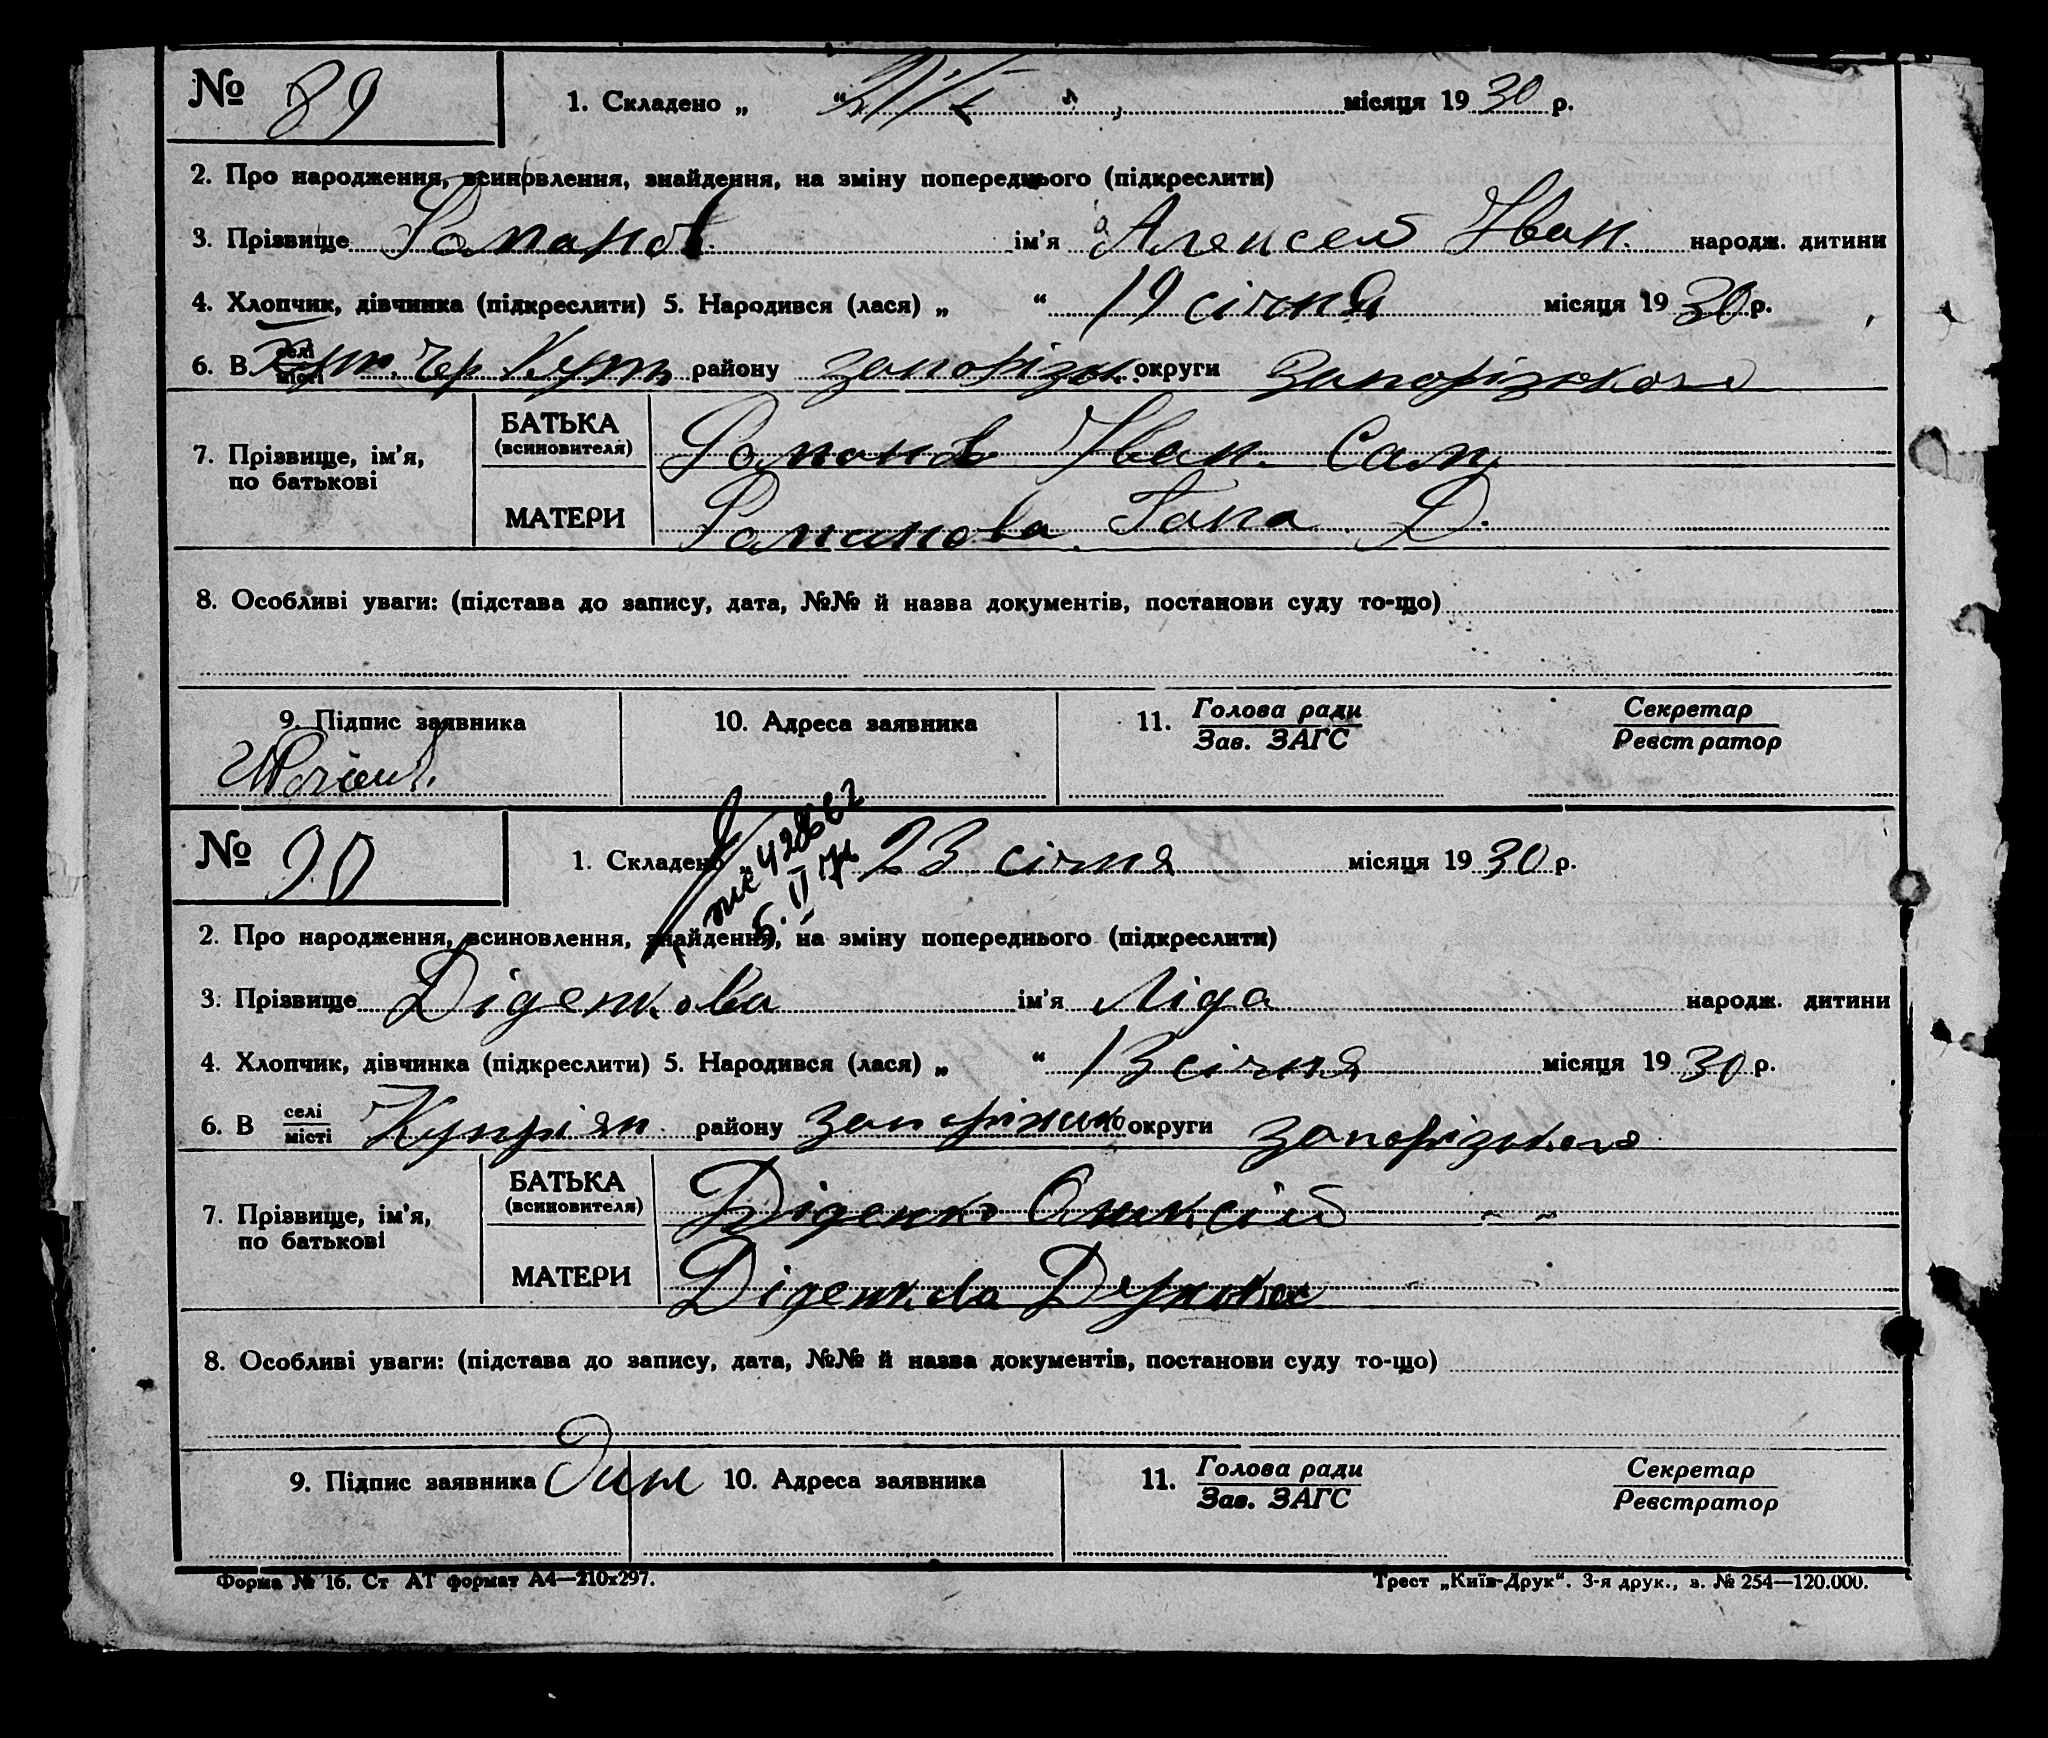 № 89
1. Складено „ “ 21/I місяця 1930 р.
2. Про народження, всиновлення, знайдення, на зміну попереднього (підкреслити)
3. Прізвище Романов ім'я Алексей Иван. народж. дитини
4. Хлопчик, дівчинка (підкреслити) 5. Народився (лася) „ “ 19 січня місяця 1930 р.
6. В селі місті хут. Чер Кут району запорізьк. округи запорізького
7. Прізвище, ім'я, по батькові
БАТЬКА (всиновителя) Романов Иван. Сам.
МАТЕРИ Романова Гапа Д.
8. Особливі уваги: (підстава до запису, дата, №№ й назва документів, постанови суду то-що)
9. Підпис заявника 10. Адреса заявника 11. Голова ради Зав. ЗАГС Секретар Реєстратор
№ 90
1. Складено 23 січня місяця 1930 р.
II
2. Про народження, всиновлення, знайдення, на зміну попереднього (підкреслити)
3. Прізвище Діденкова ім'я Ліда народж. дитини
4. Хлопчик, дівчинка (підкреслити) 5. Народився (лася) „ “ 13 січня місяця 1930 р.
6. В селі місті Купріян. району запоріжько округи запорізького
7. Прізвище, ім'я, по батькові
БАТЬКА (всиновителя) Діденко Олексій - -
МАТЕРИ Діденкова -
8. Особливі уваги: (підстава до запису, дата, №№ й назва документів, постанови суду то-що)
9. Підпис заявника 10. Адреса заявника 11. Голова ради Зав. ЗАГС Секретар Реєстратор
Форма № 16. Ст АТ формат А4—210х297. Трест „Київ-Друк“. 3-я друк., з. № 254—120.000.